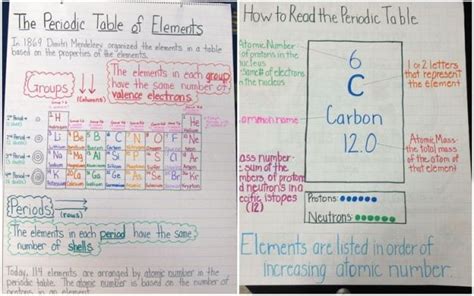 The Periodic Table of Elements
In 1869 Dimitri Mendeleev organized the elements in a table
based on the properties of the elements.
Groups
(columns)
The elements in each group
have the same number of
valence electrons.
H
He
Li Be B C N O F Ne
Na Mg Al Si P S Cl Ar
K Ca
Periods
(rows)
The elements in each period have the same
number of shells
Today, 114 elements are arranged by atomic number in the
periodic table. The atomic number is based on the number of
protons in an element.
How to Read the Periodic Table
Atomic Number
of protons in the
nucleus
same # of electrons
in the nucleus
6
C
Carbon
12.0
1 or 2 letters
that represent
the element
common name
Atomic Mass
the total mass
of the atom of
that element
ass number
sum of the
mbers of protons
d neutrons in a
ecific istopes
(12)
Protons:
Neutrons:
Elements are listed in order of
increasing atomic number.